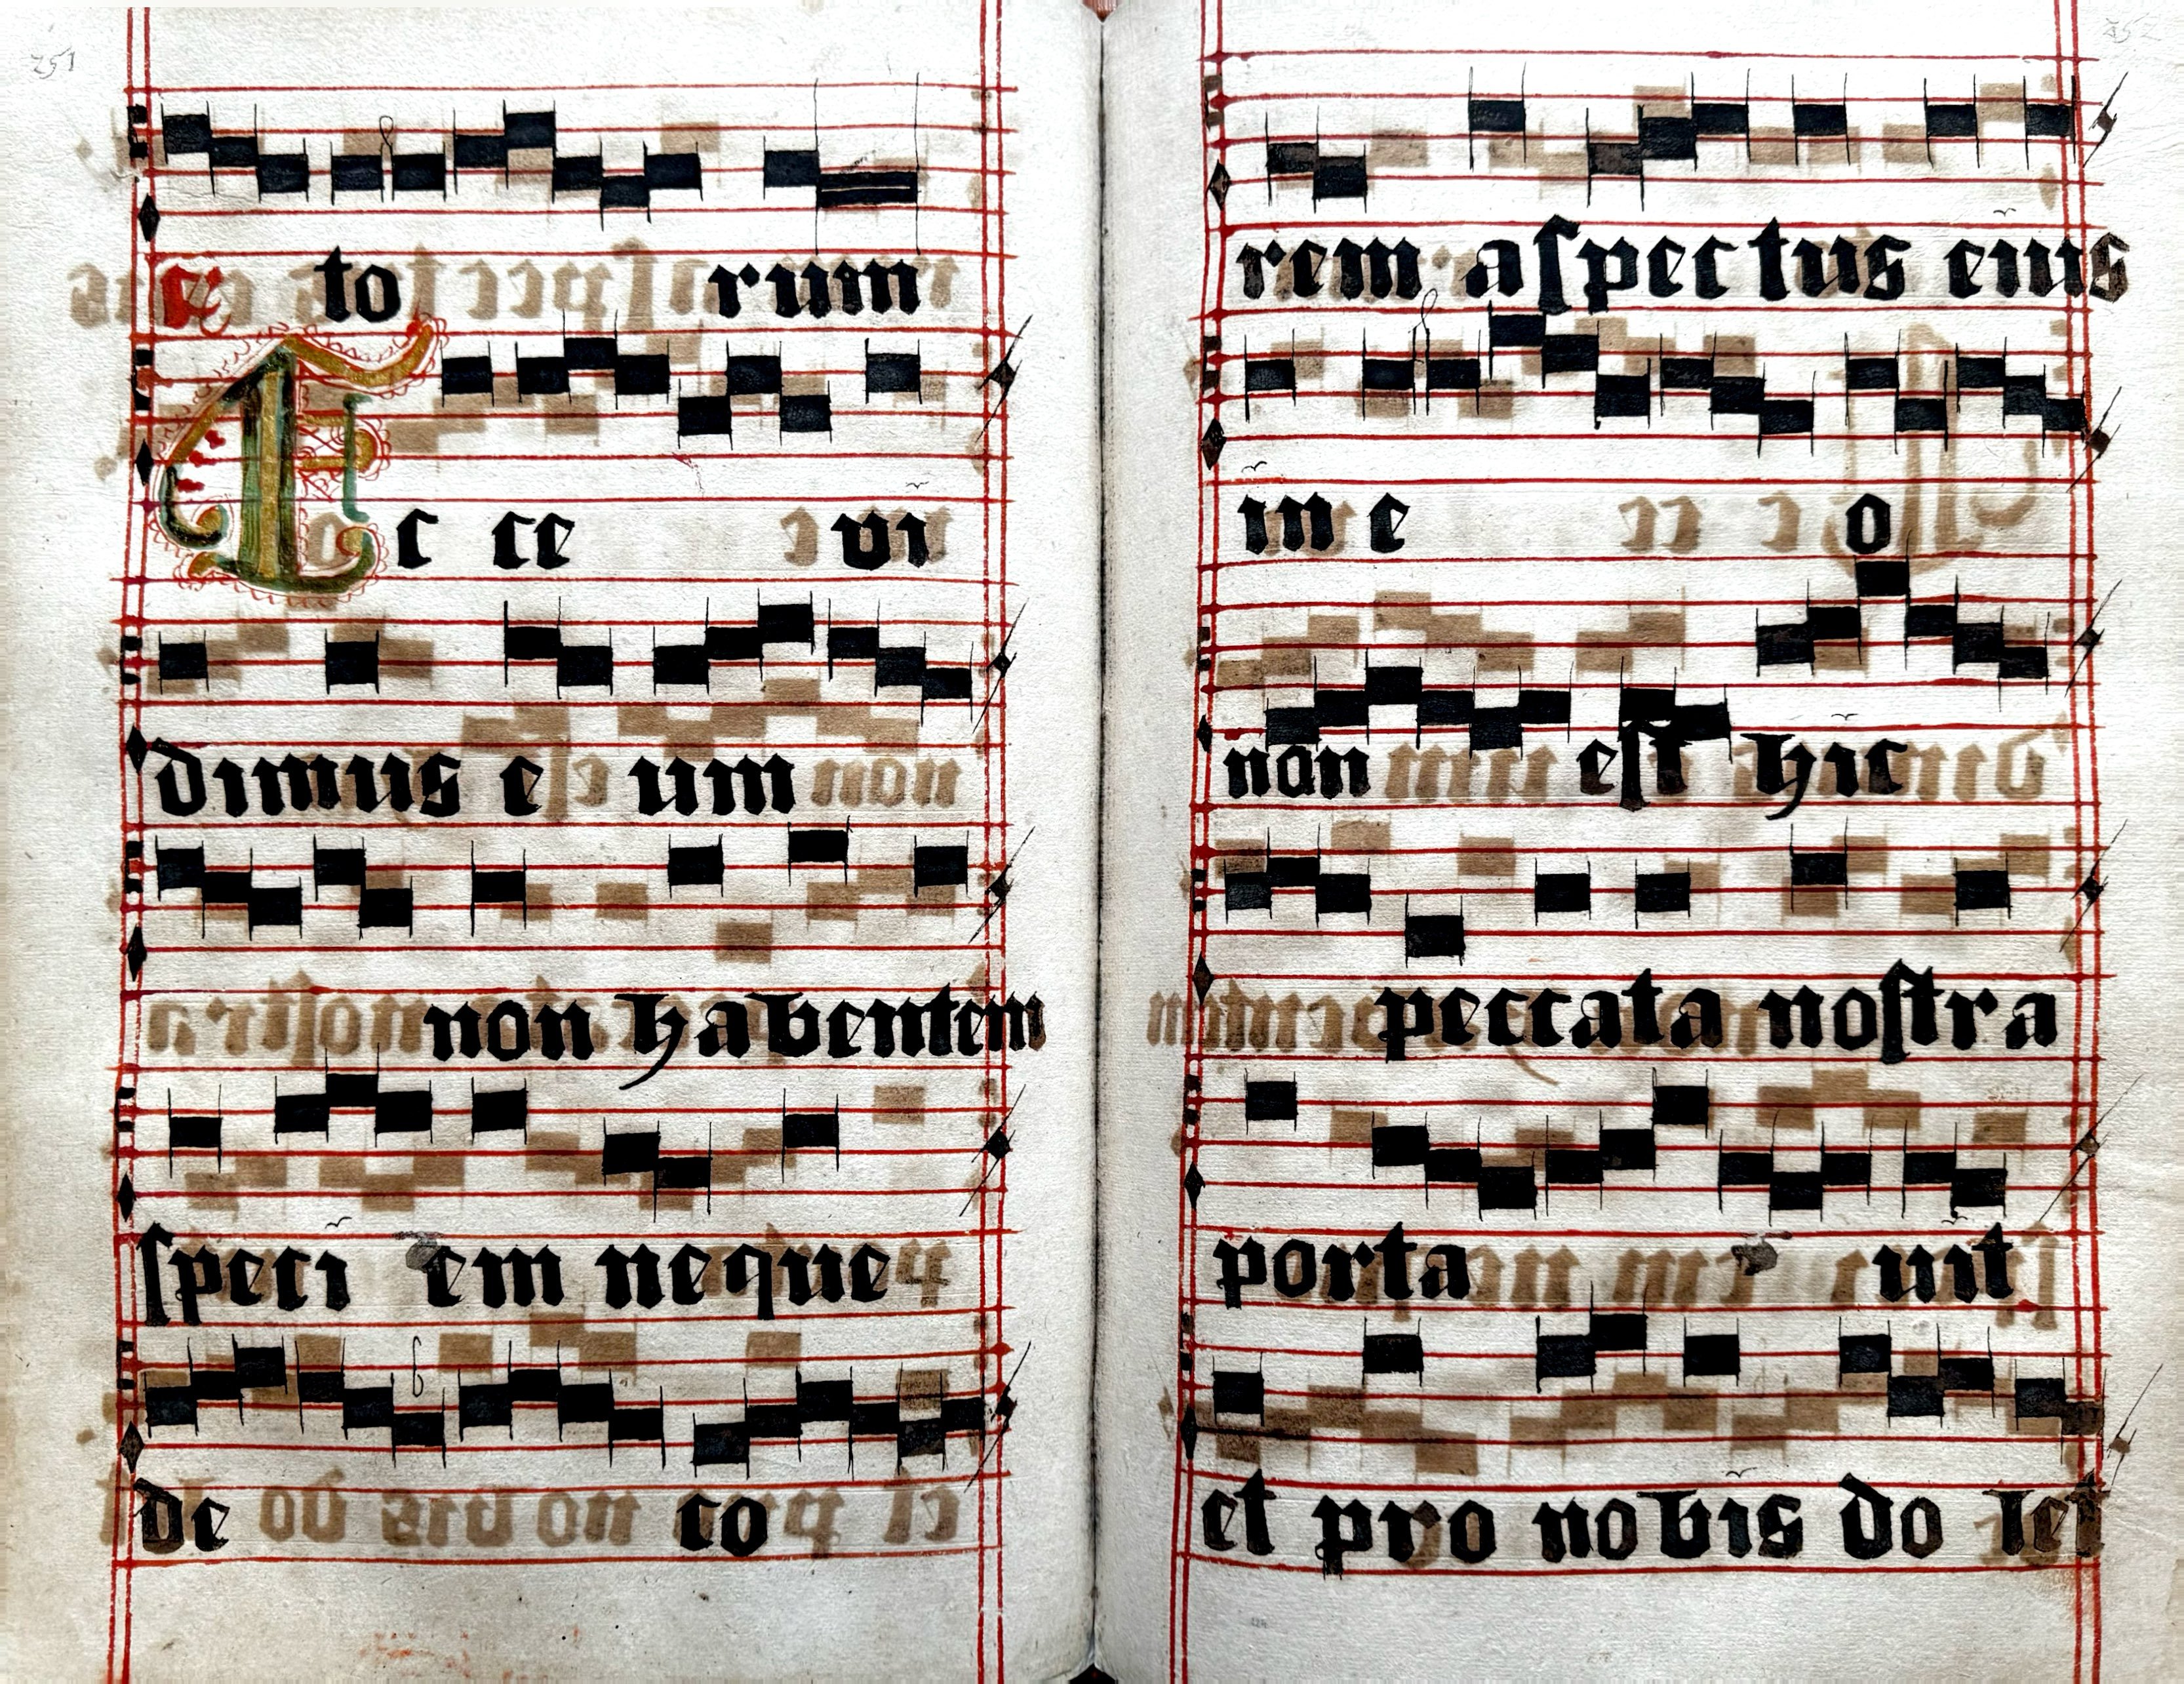 251
to rum
Ec ce vi
dimus e um
non habentem
speci em neque
de co
252
rem aſpectus eius
in e o
non eſt hic
peccata noſtra
porta uit
et pro nobis do let